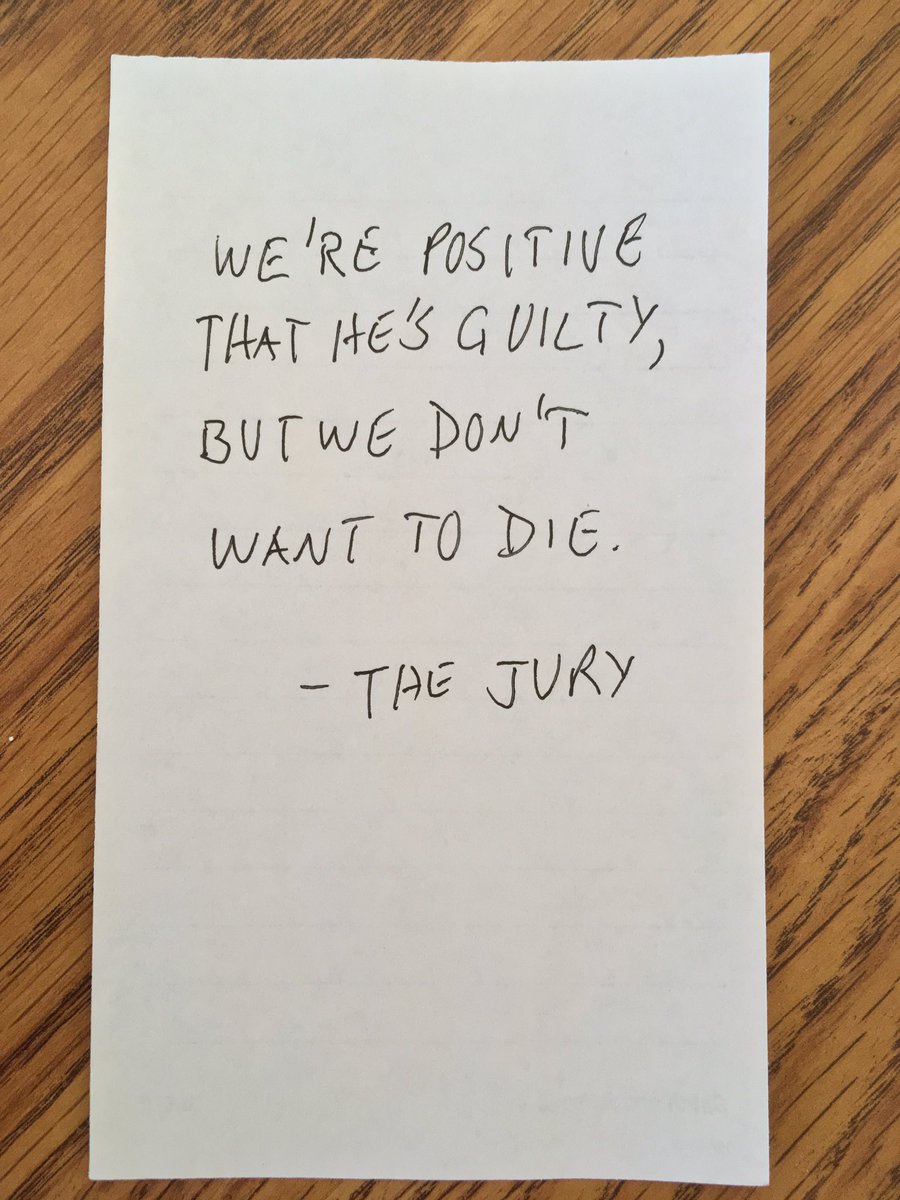 WE'RE POSITIVE
THAT HE'S GUILTY,
BUT WE DON'T
WANT TO DIE.
- THE JURY